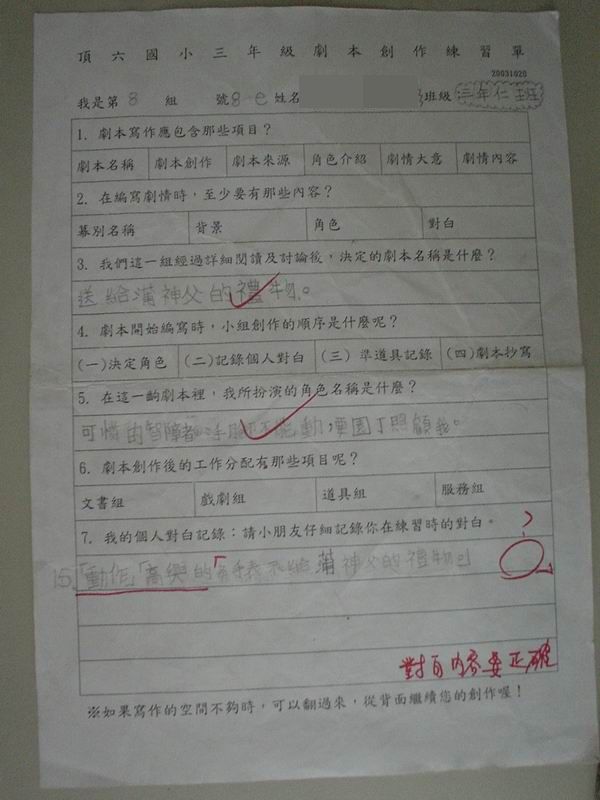 頂六國小三年級劇本創作練習單
20031020
我是第 8 組 號 8-e 姓名 班級 三年仁班
1. 劇本寫作應包含那些項目？
劇本名稱 劇本創作 劇本來源 角色介紹 劇情大意 劇情內容
2. 在編寫劇情時，至少要有那些內容？
幕別名稱 背景 角色 對白
3. 我們這一組經過詳細閱讀及討論後，決定的劇本名稱是什麼？
送給蒲神父的禮物。
4. 劇本開始編寫時，小組創作的順序是什麼呢？
(一)決定角色 (二)記錄個人對白 (三) 準道具記錄 (四)劇本抄寫
5. 在這一齣劇本裡，我所扮演的角色名稱是什麼？
可憐由智障者 手腳不能動，要園丁照顧我。
6. 劇本創作後的工作分配有那些項目呢？
文書組 戲劇組 道具組 服務組
7. 我的個人對白記錄：請小朋友仔細記錄你在練習時的對白。
?
15「動作」高興的「 給蒲神父的禮物」
對白內容要正確
※如果寫作的空間不夠時，可以翻過來，從背面繼續您的創作喔！